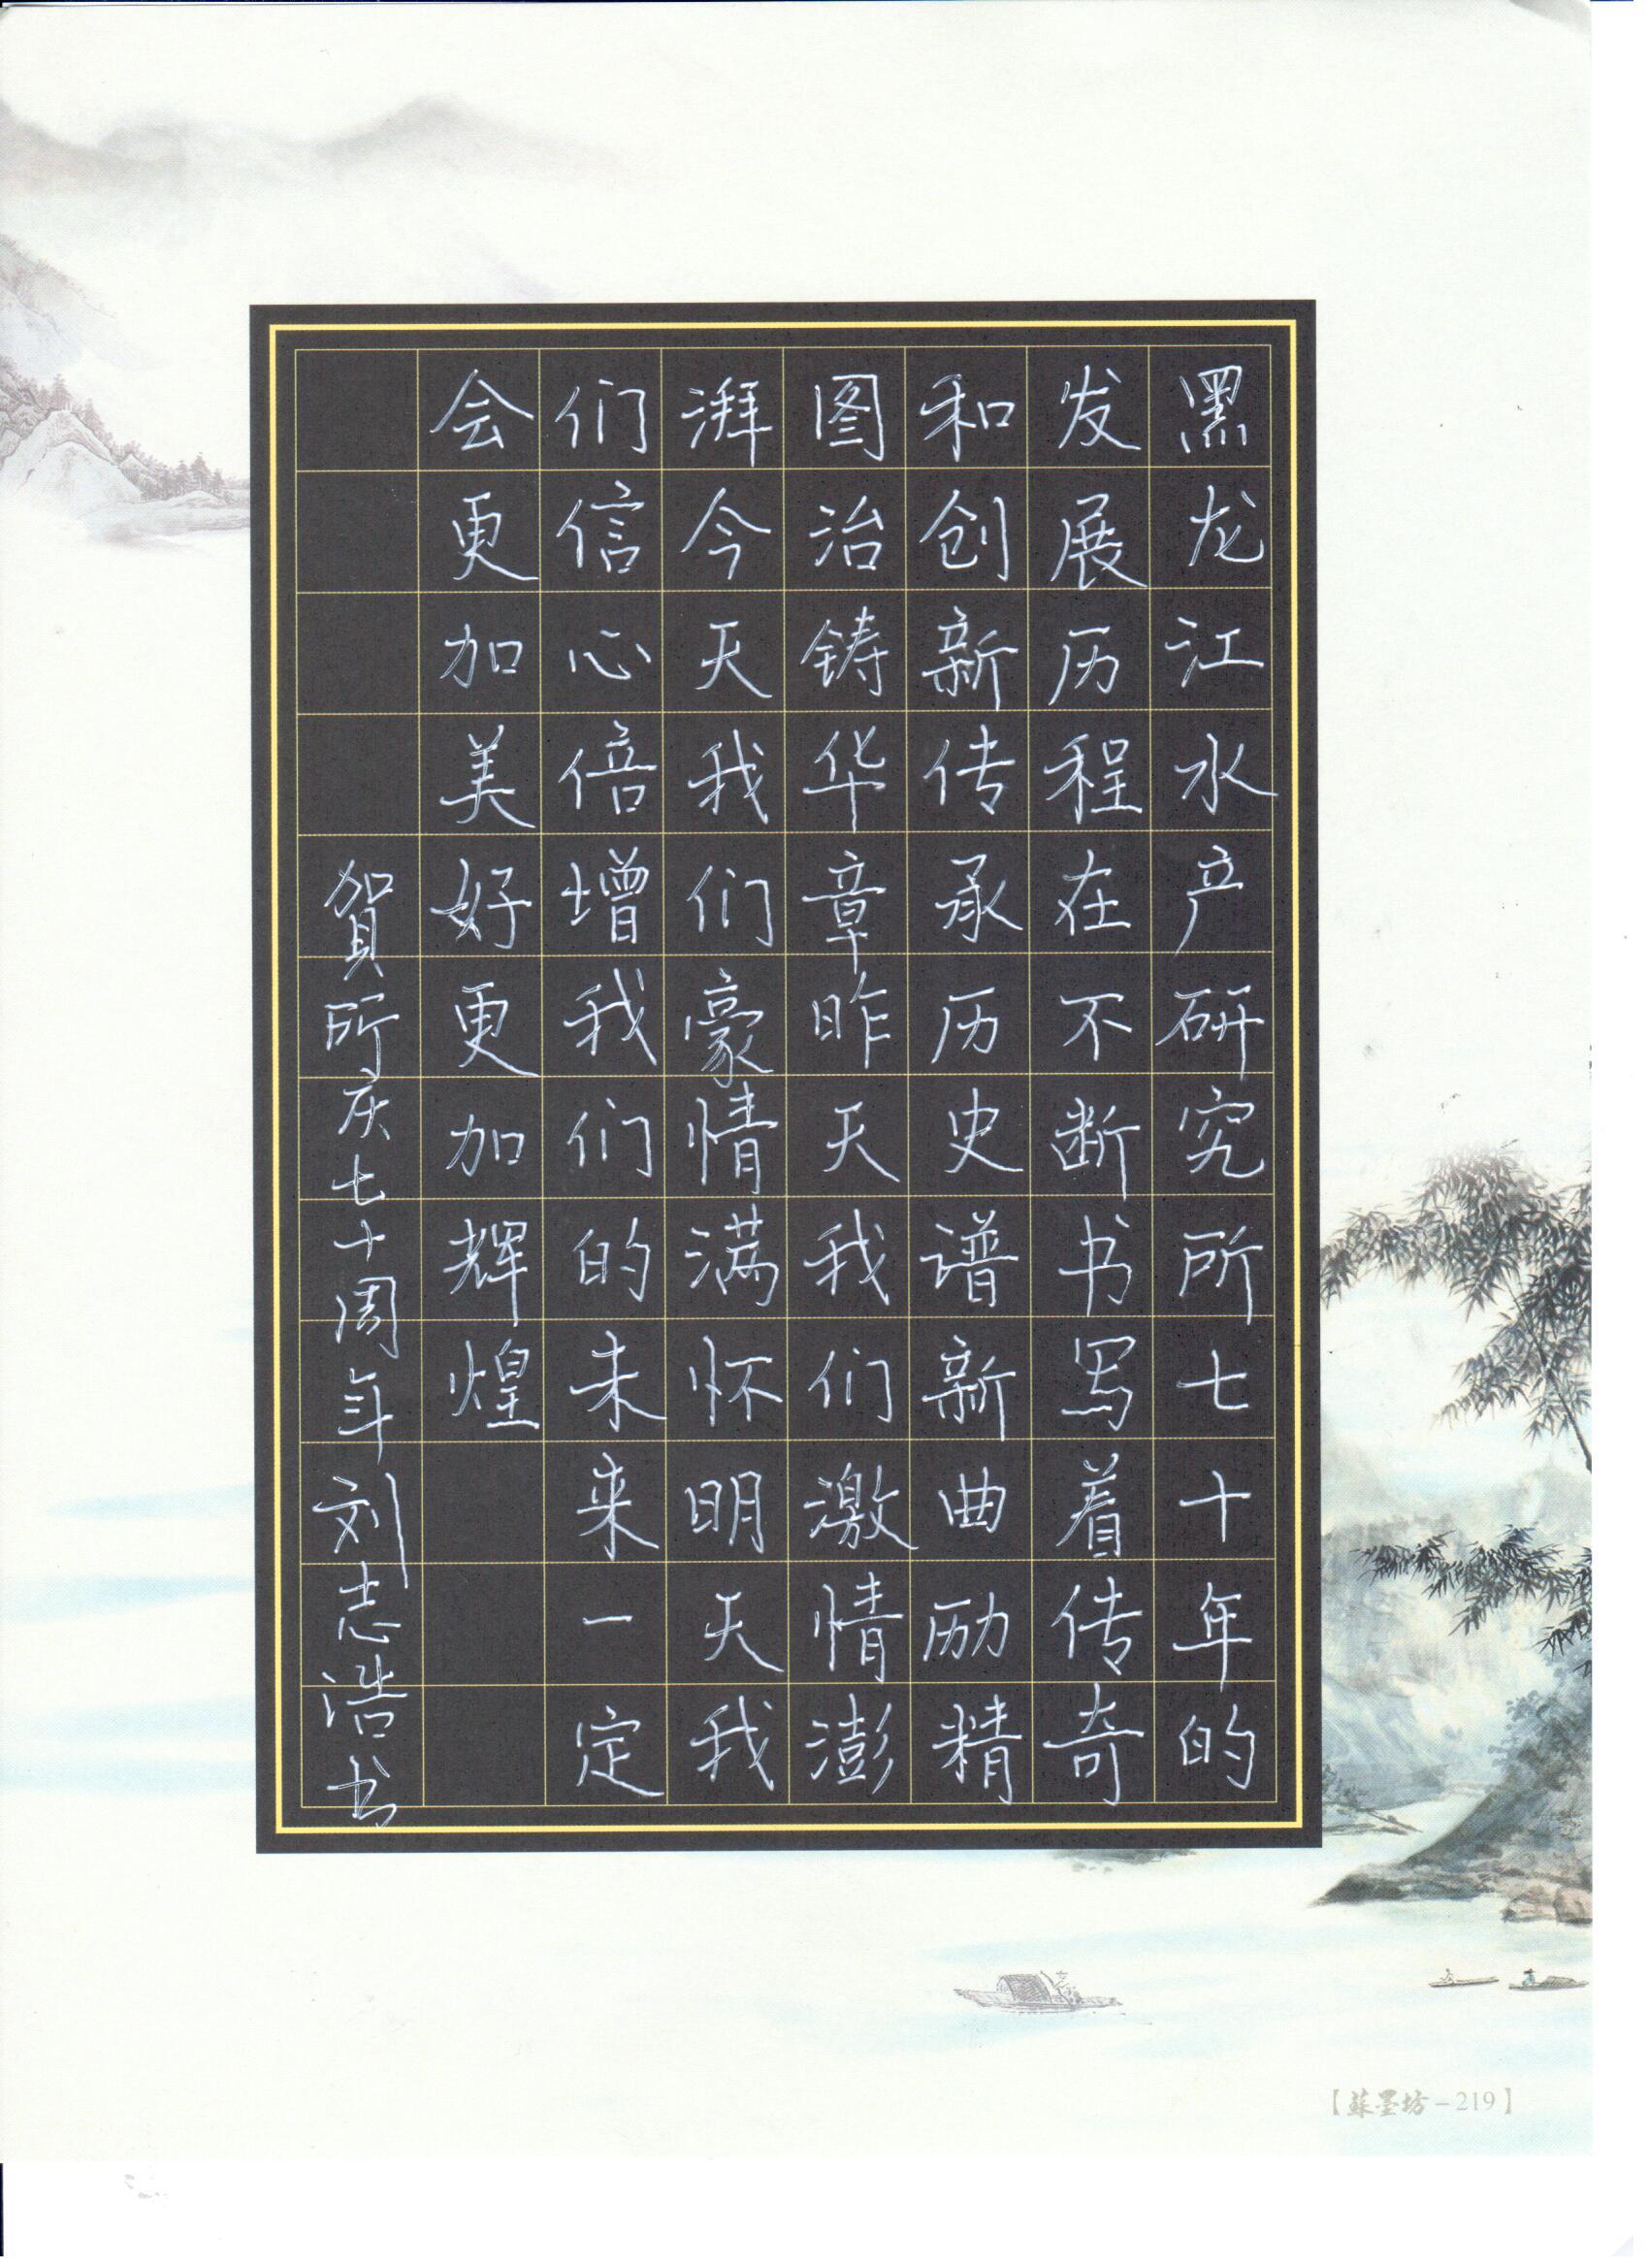 黑龙江水产研究所七十年的
发展历程在不断书写着传奇
和创新传承历史谱新曲励精
图治铸华章昨天我们激情澎
湃今天我们豪情满怀明天我
们信心倍增我们的未来一定
会更加美好更加辉煌
贺所庆七十周年刘志浩书
【蘇墨坊-219】